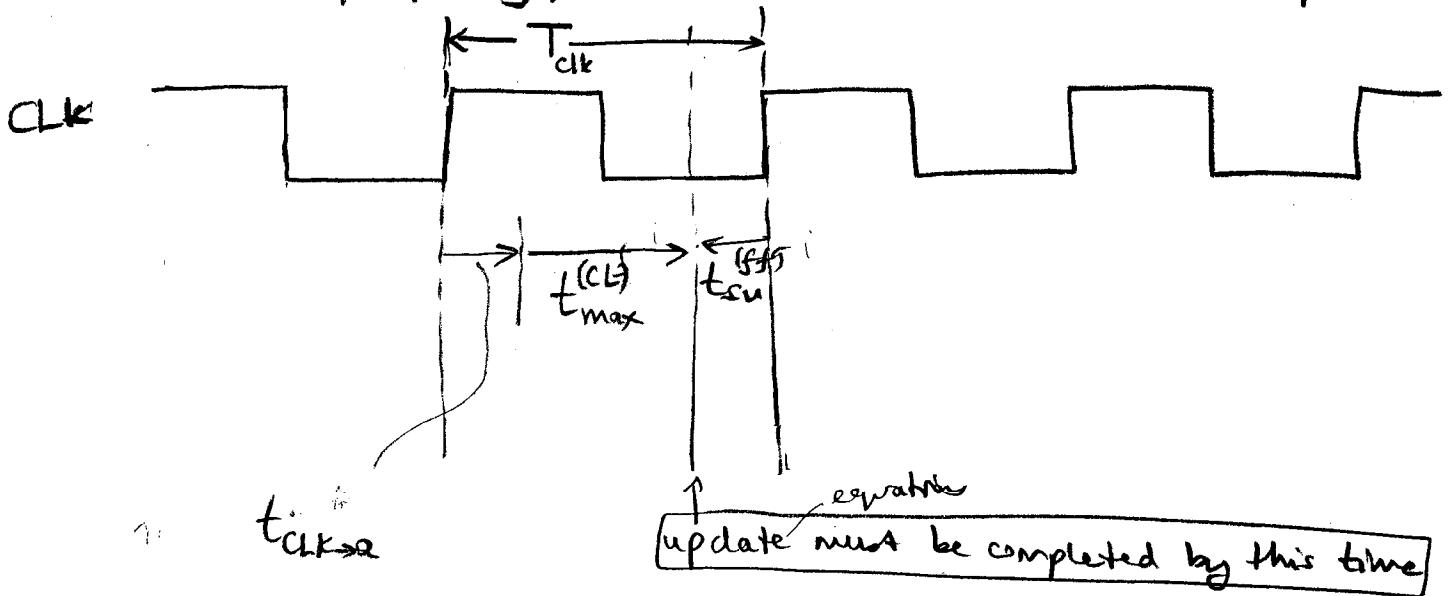 T_clk
CLK
t_max^(CL) t_su^(ff)
t_CLK→Q
equation
update must be completed by this time